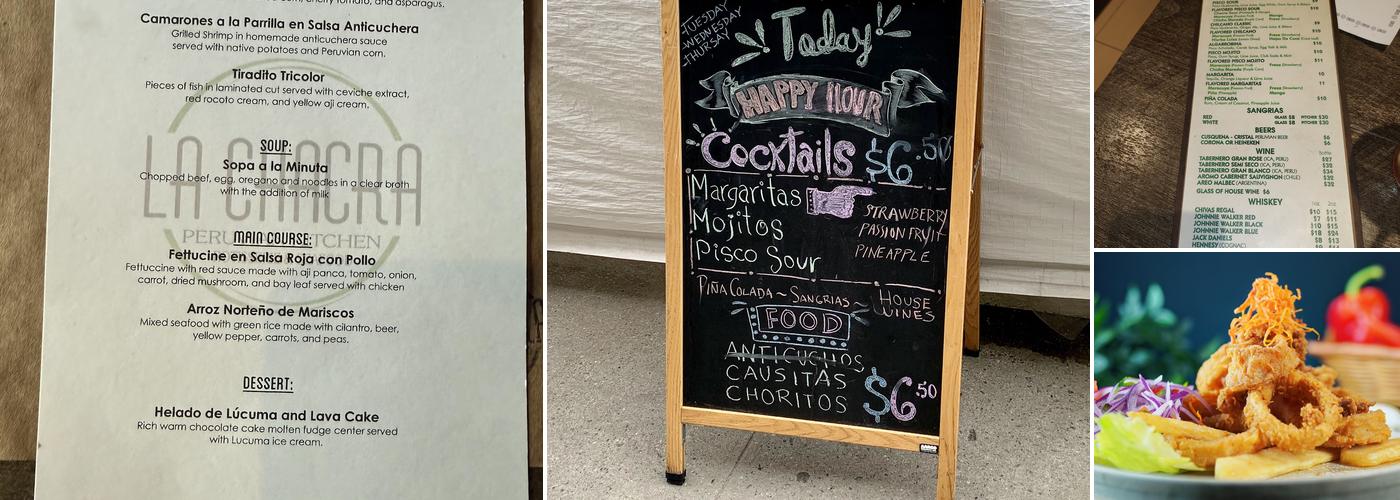 Camarones a la Parrilla en Salsa Anticuchera
Grilled Shrimp in homemade anticuchera sauce
served with native potatoes and Peruvian corn.
Tiradito Tricolor
Pieces of fish in laminated cut served with ceviche extract,
red rocoto cream, and yellow aji cream.
LA CHACRA
SOUP:
Sopa a la Minuta
Chopped beef, egg, oregano and noodles in a clear broth
with the addition of milk
MAIN COURSE:
Fettucine en Salsa Roja con Pollo
Fettuccine with red sauce made with aji panca, tomato, onion,
carrot, dried mushroom, and bay leaf served with chicken
Arroz Norteño de Mariscos
Mixed seafood with green rice made with cilantro, beer,
yellow pepper, carrots, and peas.
DESSERT:
Helado de Lúcuma and Lava Cake
Rich warm chocolate cake molten fudge center served
with Lucuma ice cream.
TUESDAY
WEDNESDAY
THURSAY
Today
HAPPY HOUR
Cocktails $6.50
Margaritas
Mojitos
Pisco Sour
STRAWBERRY
PASSION FRYIT
PINEAPPLE
PIÑA COLADA ~ SANGRIAS
HOUSE
WINES
FOOD
ANTICUCHOS
CAUSITAS
CHORITOS
$6.50
PISCO SOUR
FLAVORED PISCO SOUR
CHILCANO CLASSIC $9
FLAVORED CHILCANO
ALGARROBINA $10
PISCO MOJITO $10
FLAVORED PISCO MOJITO $11
MARGARITA 10
FLAVORED MARGARITAS 11
PIÑA COLADA $10
Rum, Cream of Coconut, Pineapple Juice
SANGRIAS
RED GLASS $8 PITCHER $30
WHITE GLASS $8 PITCHER $30
BEERS
CUSQUENA - CRISTAL PERUVIAN BEER $6
CORONA OR HEINEKEN $6
WINE
Bottle
TABERNERO GRAN ROSE (ICA, PERU) $27
TABERNERO SEMI SECO (ICA, PERU) $32
TABERNERO GRAN BLANCO (ICA, PERU) $34
AROMO CABERNET SAUVIGNON (CHILE) $32
AREO MALBEC (ARGENTINA) $32
GLASS OF HOUSE WINE $6
WHISKEY
1oz 2oz
CHIVAS REGAL $10 $15
JOHNNIE WALKER RED $7 $11
JOHNNIE WALKER BLACK $10 $15
JOHNNIE WALKER BLUE $18 $24
JACK DANIELS $8 $13
HENNESY (COGNAC)